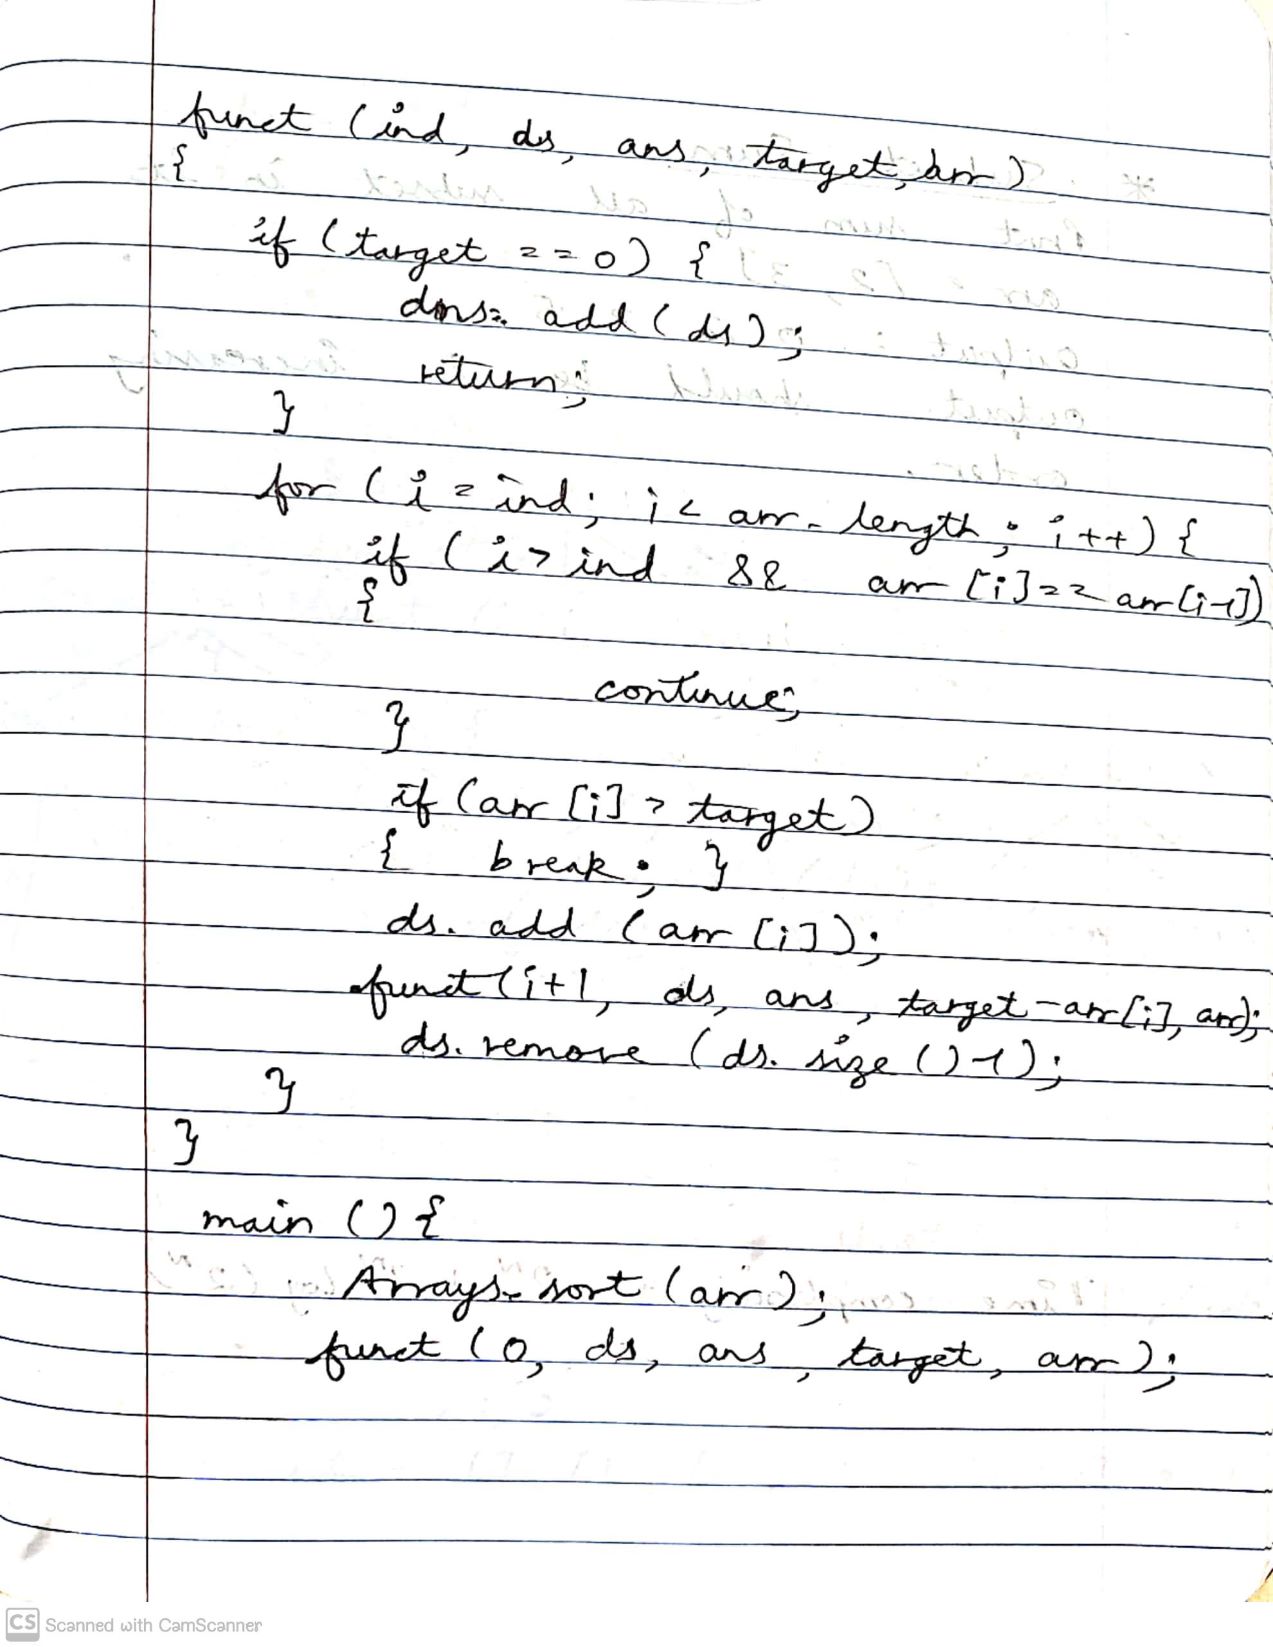 funct (ind, ds, ans, target, arr)
{
if (target == 0) {
ans. add (ds);
return;
}
for (i = ind; i < arr. length; i++) {
if (i > ind && arr [i] == arr [i-1])
{
continue;
}
if (arr [i] > target)
{ break; }
ds. add (arr [i]);
funct (i+1, ds, ans, target - arr[i], arr);
ds. remove (ds. size () -1);
}
}
main () {
Arrays. sort (arr);
funct (0, ds, ans, target, arr);
CS Scanned with CamScanner